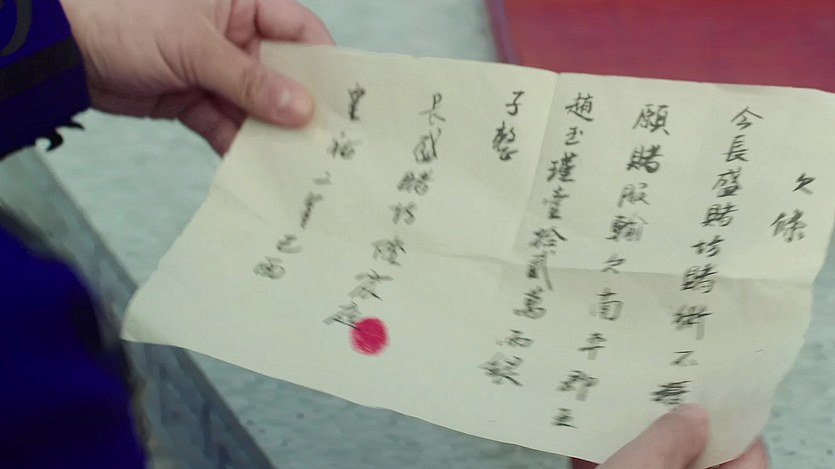 欠條
今長盛賭坊賭術不精
願賭服輸欠南平郡王
趙玉瑾壹拾貳萬兩銀
子整
長盛賭坊 震庭
皇祐二年己酉